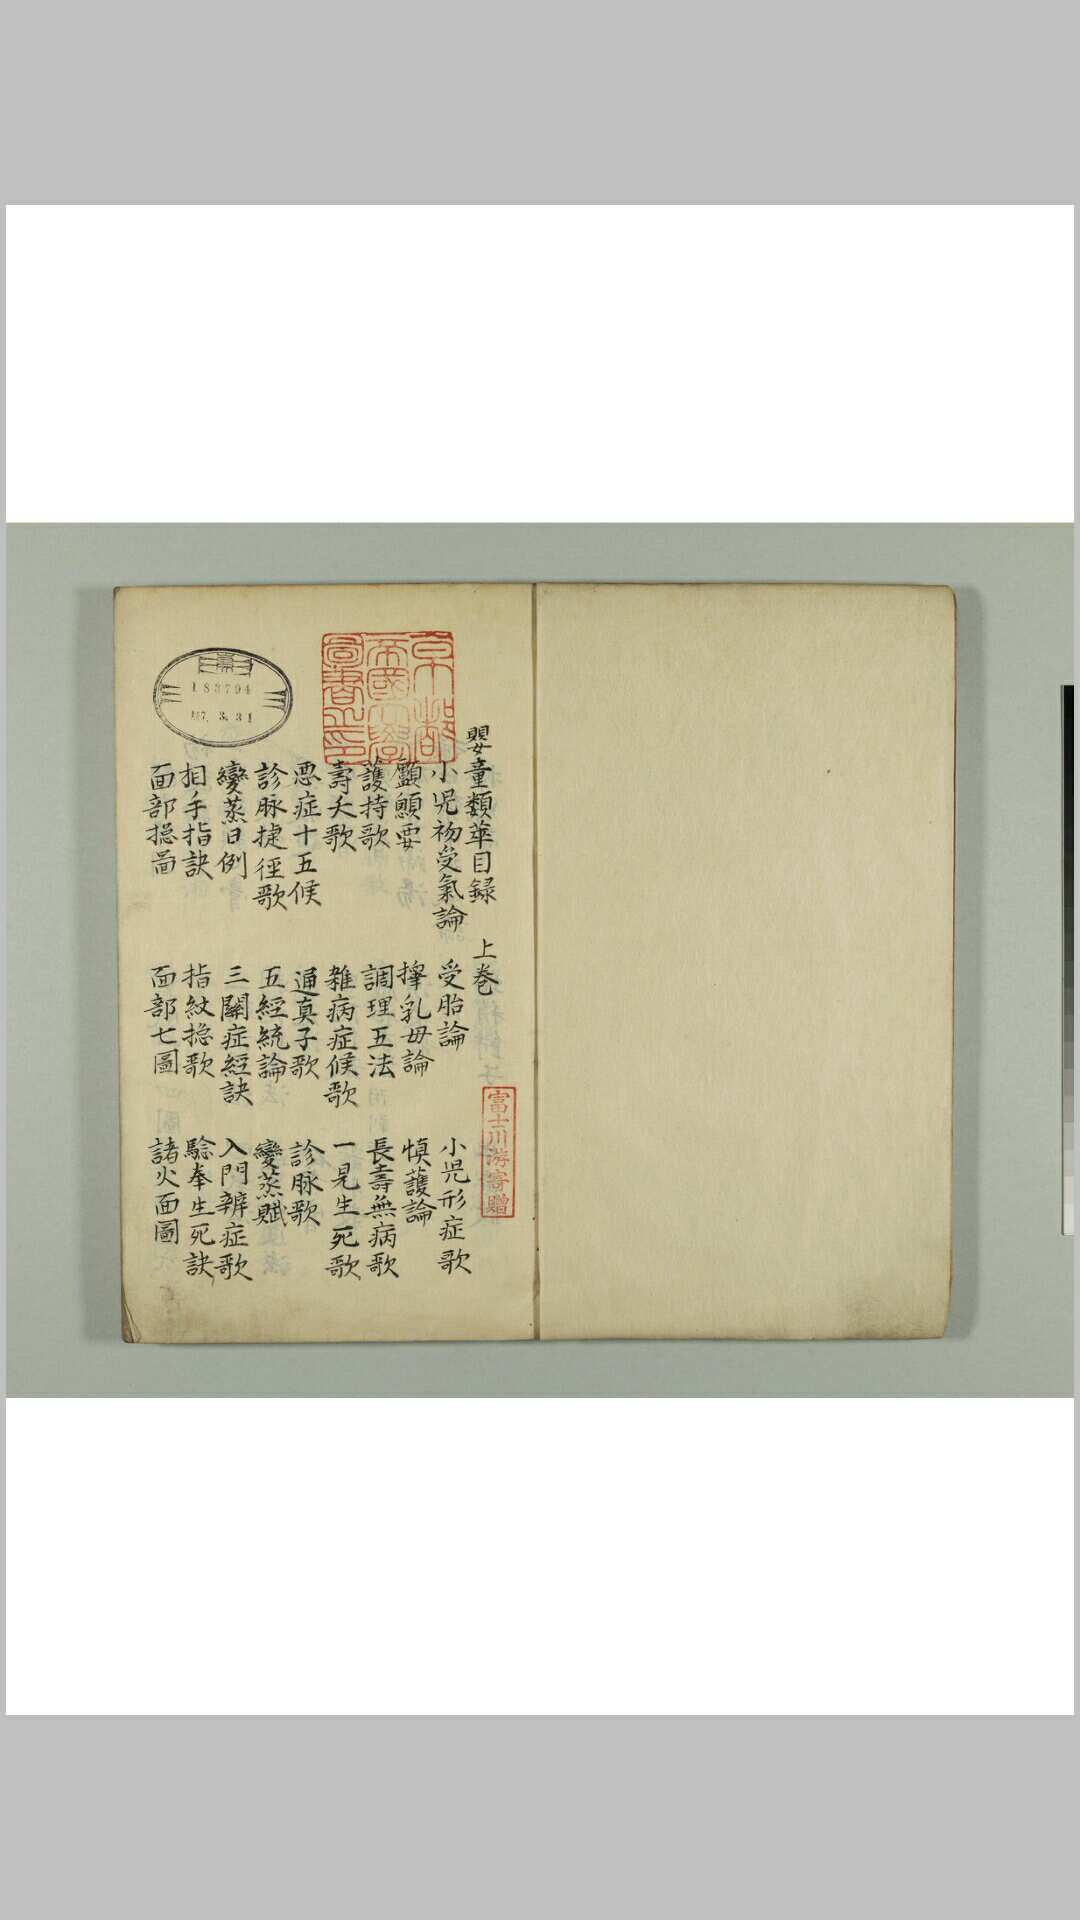 嬰童類萃目録　上巻
小児初受氣論　受胎論　小児形症歌
顱顖要　擇乳母論　慎護論
護持歌　調理五法　長壽無病歌
壽夭歌　雜病症候歌　一見生死歌
悪症十五候　通真子歌　診脉歌
診脉捷徑歌　五經統論　變蒸賦
變蒸日例　三關症經訣　入門辨症歌
相手指訣　指紋揔歌　驗拳生死訣
面部揔啚　面部七圖　諸火面圖
京都
帝國大學
圖書之印
富士川游寄贈
183794
3. 31